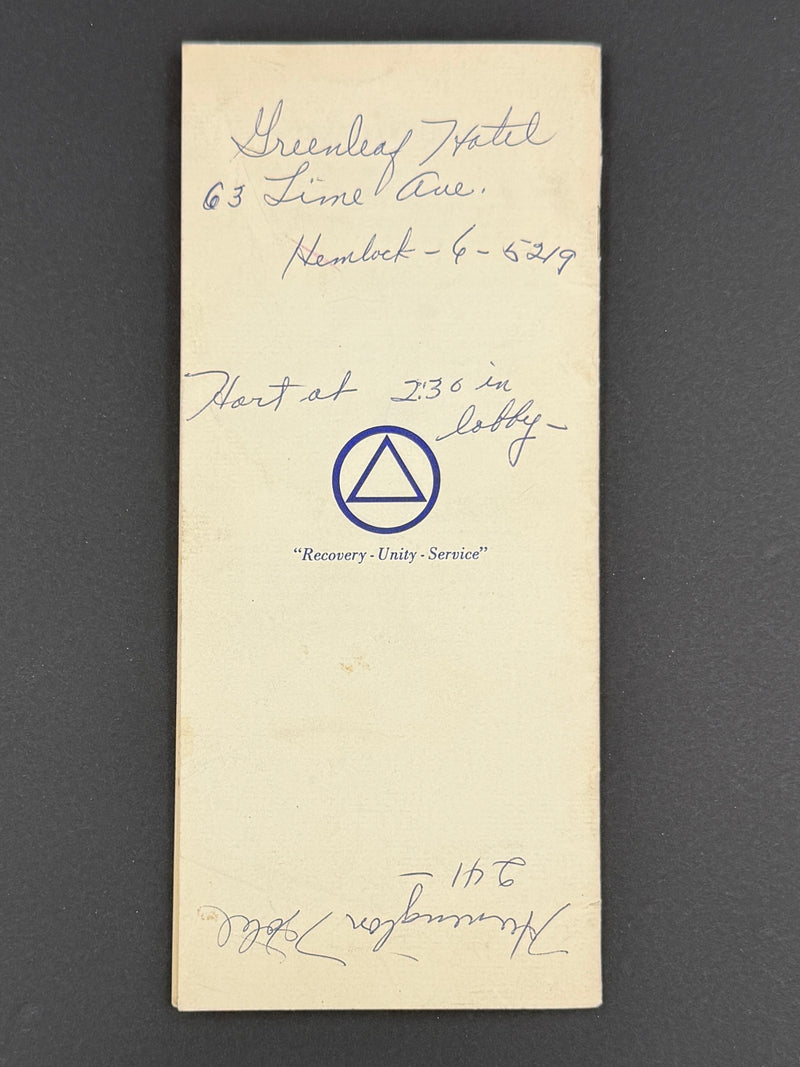 Greenleaf Hotel
63 Lime Ave.
Hemlock - 6 - 5219
Hart at 2:30 in
lobby -
“Recovery - Unity - Service”
Hotel
241 -